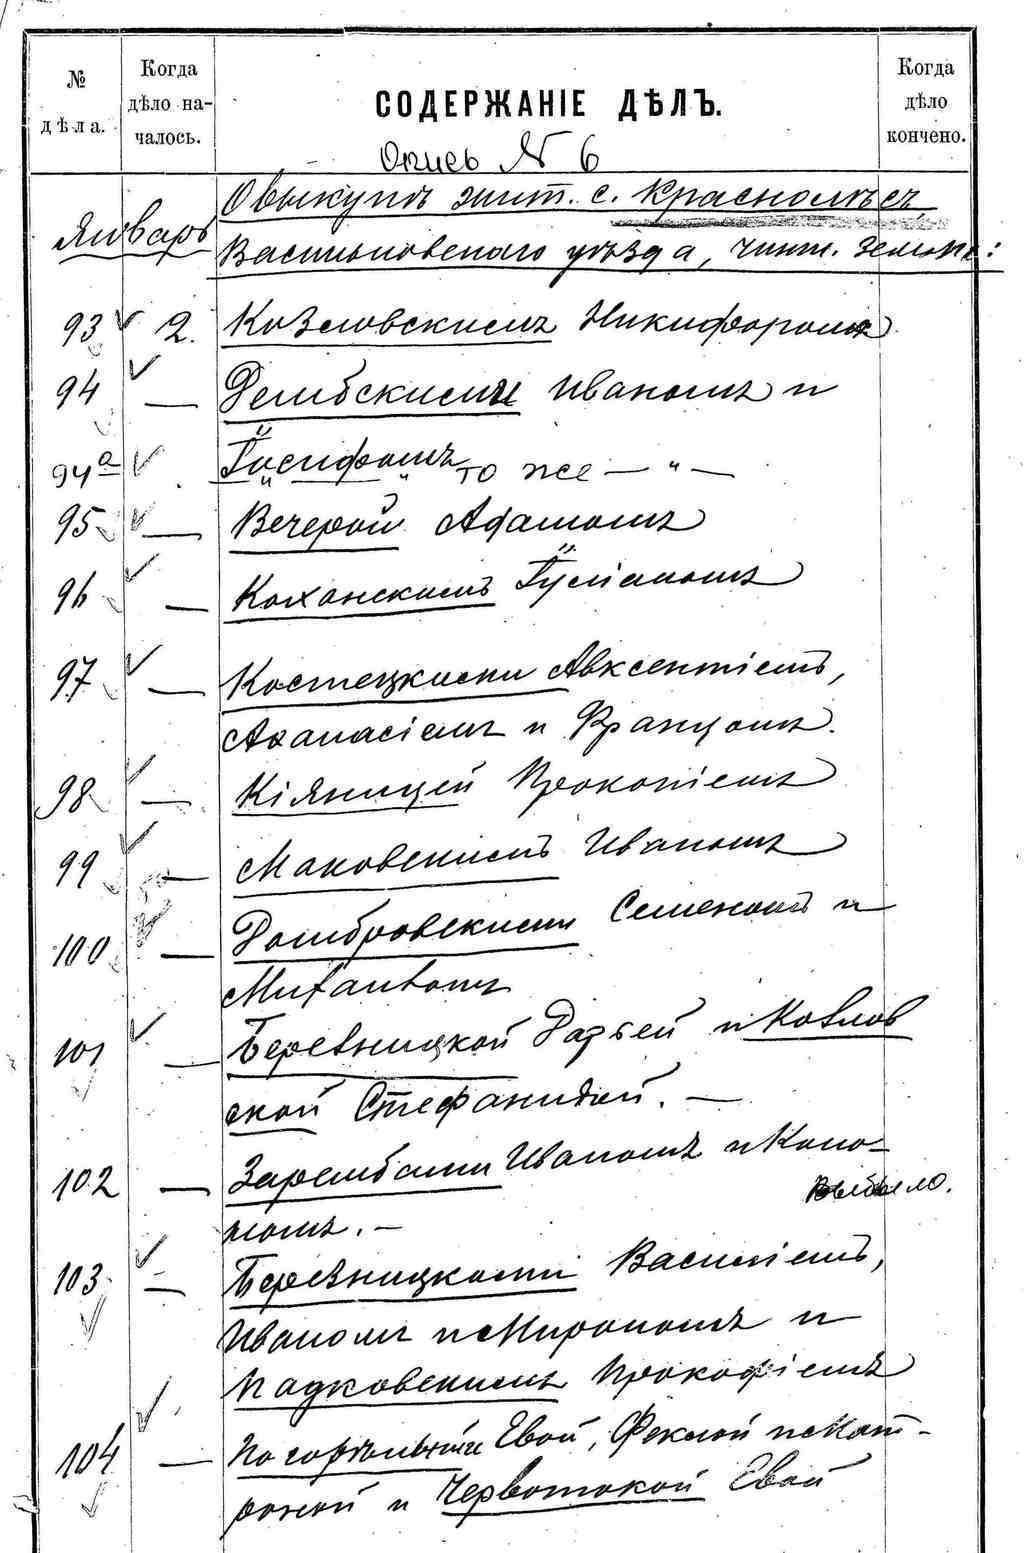 № дѣла.
Когда дѣло на-чалось.
СОДЕРЖАНІЕ ДѢЛЪ.
Когда дѣло кончено.
Опись № 6
О выкупѣ жит. с. Краснолѣсъ
Январь
Васильковскаго уѣзда, чинш. земель:
93 2. Козловскимъ Никифоромъ
94 — Дембскими Иваномъ и
94а Іосифомъ то же — " —
95 — Вечерой Адамомъ
96 — Коханскимъ Іуліаномъ
97 — Костецкими Авксентіемъ,
Афанасіемъ и Францомъ.
98 — Кіяницей Прокопіемъ
99 — Маковскимъ Иваномъ
100 — Домбровскими Семеномъ и
Михаиломъ
101 — Березницкой Дарьей и Козлов
ской Стефанидой. —
102 — Зарембами Иваномъ и Коно-
номъ. — Выбыло.
103 — Березницкими Василіемъ,
Иваномъ и Мирономъ и
Падковскимъ Прокофіемъ
104 — Погорѣльыми Евой, Феклой и Мат-
роной и Червотокой Евой